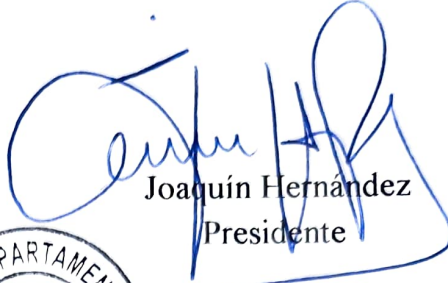 Joaquín Hernández
Presidente
PARTAMEN